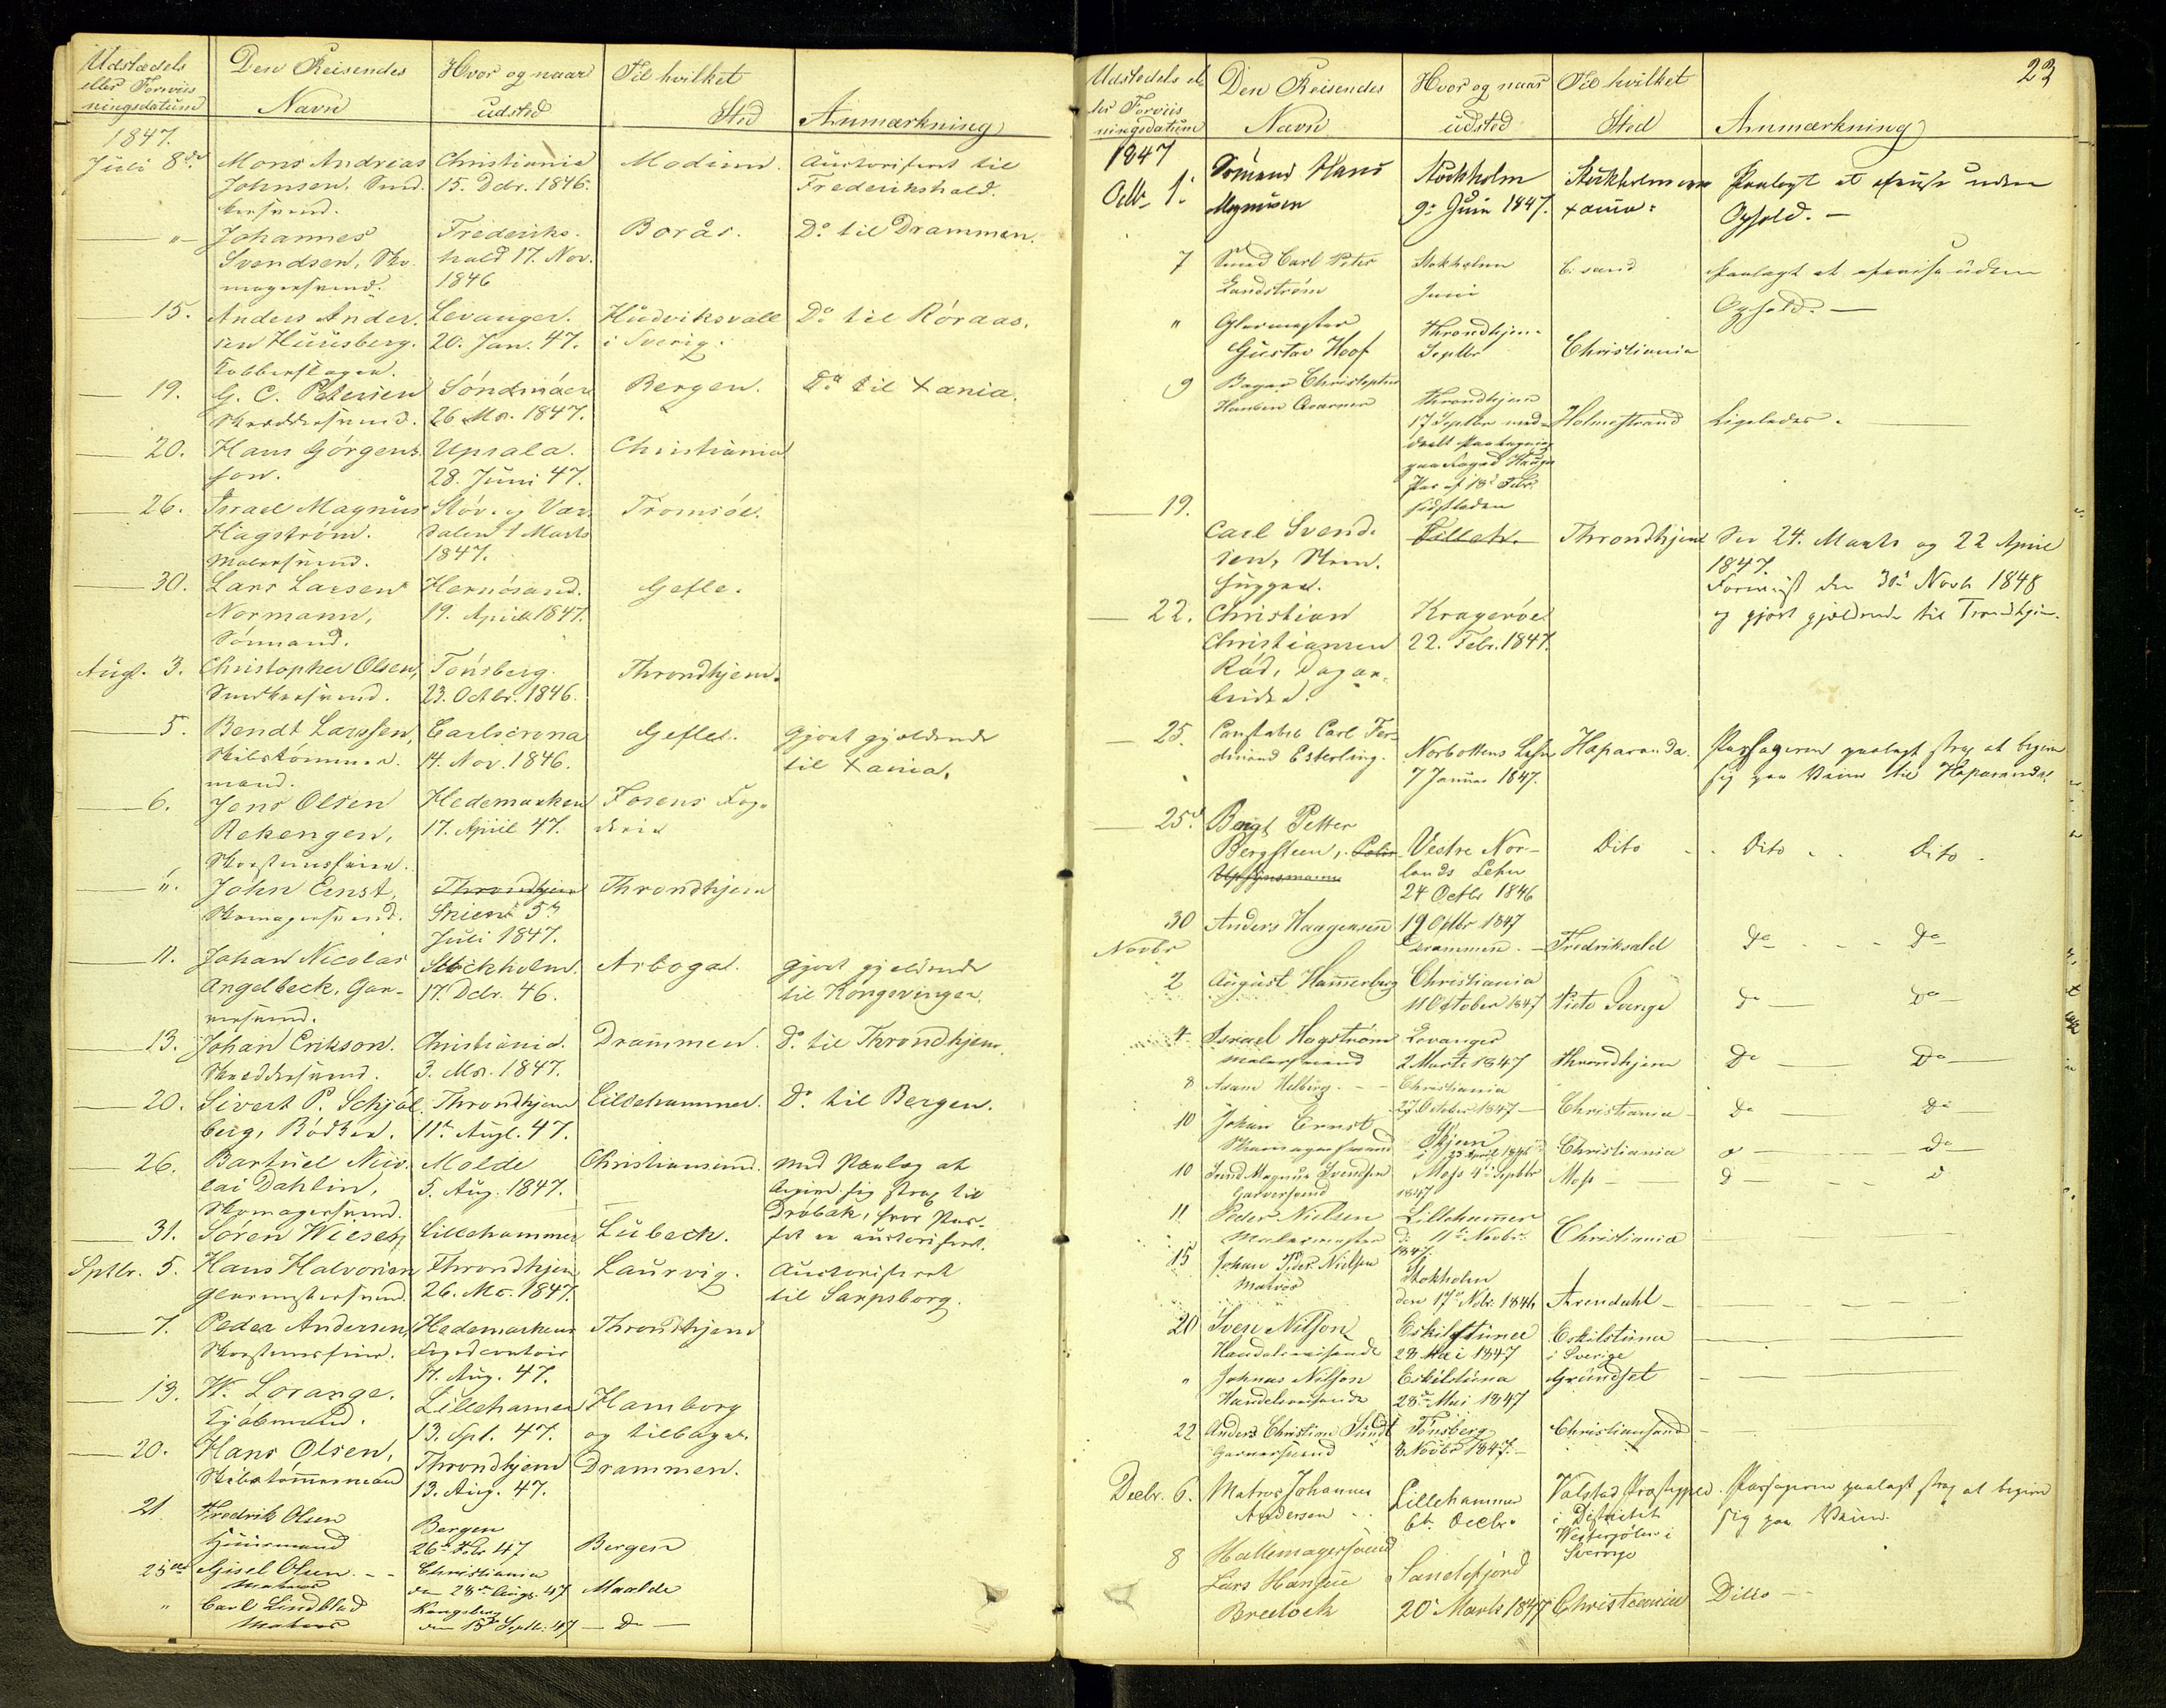 Udstædels
eller Forviis
ningsdatum
Den Reisendes
Navn
Hvor og naar
udsted
Til hvilket
Sted
Anmærkning
1847.
Juli 8de Mons Andreas Christiania Modum. Autoriseret til
Johnsen, Smed. 15. Dcbr. 1846. Frederikshald.
Johannes Frederiks- Borås. Do til Drammen.
Svendsen, Sko- hald 17. Nov.
magersvend. 1846
15. Anders Ander- Levanger. Hudviksvall Do til Röraas.
sen Huusberg. 20. Jan. 47. i Sverig.
Kobberslager.
19. G. C. Petersen Söndmöer Bergen. Do til Xania.
Skræddersvend. 26 Mai. 1847.
20. Hans Görgens- Upsala. Christiania
son. 28. Juni 47.
26. Israel Magnus Stör- og Vær- Tromsöe.
Hagström. dalen 1 Marts
Malersvend. 1847.
30. Lars Larsen Hernösand. Gefle.
Normann, 19. April 1847.
Sömand.
Augt. 3. Christopher Olsen, Tönsberg. Throndhjem.
Snedkersvend. 23. Octbr. 1846.
5. Bendt Larssen, Carlscrona Gefle. gjort gjældende
Skibstömmer- 14. Nov. 1846. til Xania.
mand.
6. Jens Olsen Hedemarken Fosens Fog-
Rekengen, 17. April 47. derie
Skorsteensfeier.
". John Ernst, Throndhjem Throndhjem
Skomagersvend. Skien 5te
Juli 1847.
11. Johan Nicolas Stockholm. Arboga. gjort gjældende
Angelbeck, Gar- 17. Dcbr. 46. til Kongsvinger.
versvend.
13. Johan Erikson. Christiania. Drammen. Do til Throndhjem.
Skræddersvend. 3. Mai. 1847.
20. Sivert P. Schjöl- Throndhjem Lillehammer. Do til Bergen.
berg, Bödker. 11te Augt. 47.
26. Bartuel Nico- Molde Christiansund. med Paalæg at
lai Dahlin, 5. Aug. 1847. begive sig strax til
Skomagersvend. Dröbak, hvor Pas-
31. Sören Wiesen Lillehammer Lübeck. set er autoriseret.
Sptbr. 5. Hans Halvorsen Throndhjem Laurvig. Autoriseret
Glarmestersvend. 26. Mai. 1847. til Sarpsborg.
7. Peder Andersen, Hedemarkens Throndhjem
Skorsteensfeier. Fogedcontoir
17. Aug. 47.
13. W. Lorange. Lillehamer Hamborg
Kjöbmand. 13. Spt. 47. og tilbage.
20. Hans Olsen, Throndhjem Drammen.
Skibstömmermand 13. Aug. 47.
21. Fredrik Olsen Bergen
Huusmand 26de Febr 47 Bergen
25de Olsen Christiania
Matros den 28de Augt. 47 Maalde
" Carl Lindblad Kongsberg
Matros den 15de Septbr. 47 Do
23
Udstedels el-
ler Forviis
ningsdatum
Den Reisendes
Navn
Hvor og naar
udsted
Til hvilket
Sted
Anmærkning
1847
Octbr 1. Sömand Hans Stockholm Stockholm over Paalagt at afreise uden
Magnusen 9de Juni 1847. Xania. Ophold. —
7 Smed Carl Peter Stokholm C. sand Paalagt at afreise uden
Landström Juni Ophold. —
" Glarmester Throndhjem
Gustav Hoof Septbr Christiania
9 Bager Christopher Throndhjem
Hansen 17 Septbr med- Holmestrand Ligeledes.
deelt Paategning
paa Foged
Pas af 18de Febr
sidstleden
19. Carl Svend- Lilleh. Throndhjem See 24. Marts og 22 April
sen, Steen- 1847.
hugger. Forevist den 30te Novb 1848
og gjort gjældende til Trondhjem.
22. Christian Kragerøe
Christiansen 22. Febr. 1847.
Röd, Dagar-
beider.
25. Constabel Carl Fer- Norbottens Lehn Haparanda. Passageren paalagt strax at begive
dinand Esterling. 7 Januar 1847. sig paa Veien til Haparanda.
25de Bengt Petter
Bergsteen, Vestre Nor- Dito Dito Dito
Opsynsmand lands Lehn
24 Octbr 1846
30 Anders Haagensen 19 Octbr 1847
Novbr Drammen. — Fredriksald Do Do
2 August Hammerberg Christiania
11 October 1847 Sverige Do — Do
4 Israel Hagström Levanger
Malersvend 2 Marts 1847 Throndhjem Do — Do
8 Adam Helberg Christiania
27 October 1847 — Christiania Do — Do
10 Johan Ernst Skien
Skomagersvend 23 April 1846 Christiania Do
10 Magnus Svendsen Moss 4de Septbr Moss
Garversvend 1847
11 Peder Nielsen Lillehamer
Malermester d: 11te Novbr. Christiania
1847.
15 Johan Peder Nielsen Stokholm
Matros den 17de Nobr. 1846 Arendahl
20 Sven Nilson Eskilstuna Eskilstuna
Handelsreisende 28 Mai 1847 i Sverige
" Johnas Nilson Eskilstuna Grundset
Handelsreisende 28de Mai 1847
22 Anders Christian Sundt Tönsberg Christiansand
Garversvend 2 Novbr 1847. —
Decbr. 6. Matros Johannes Lillehammer Valstad Præstegjeld. Passageren paalagt strax at begive
Andersen 6te Decbr i Districtet sig paa Veien.
Westergötland i
Sverrige
8 Hattemagersvend
Lars Hansen Sandefjord
Bredock 20de Marts 1847 Christiania Ditto